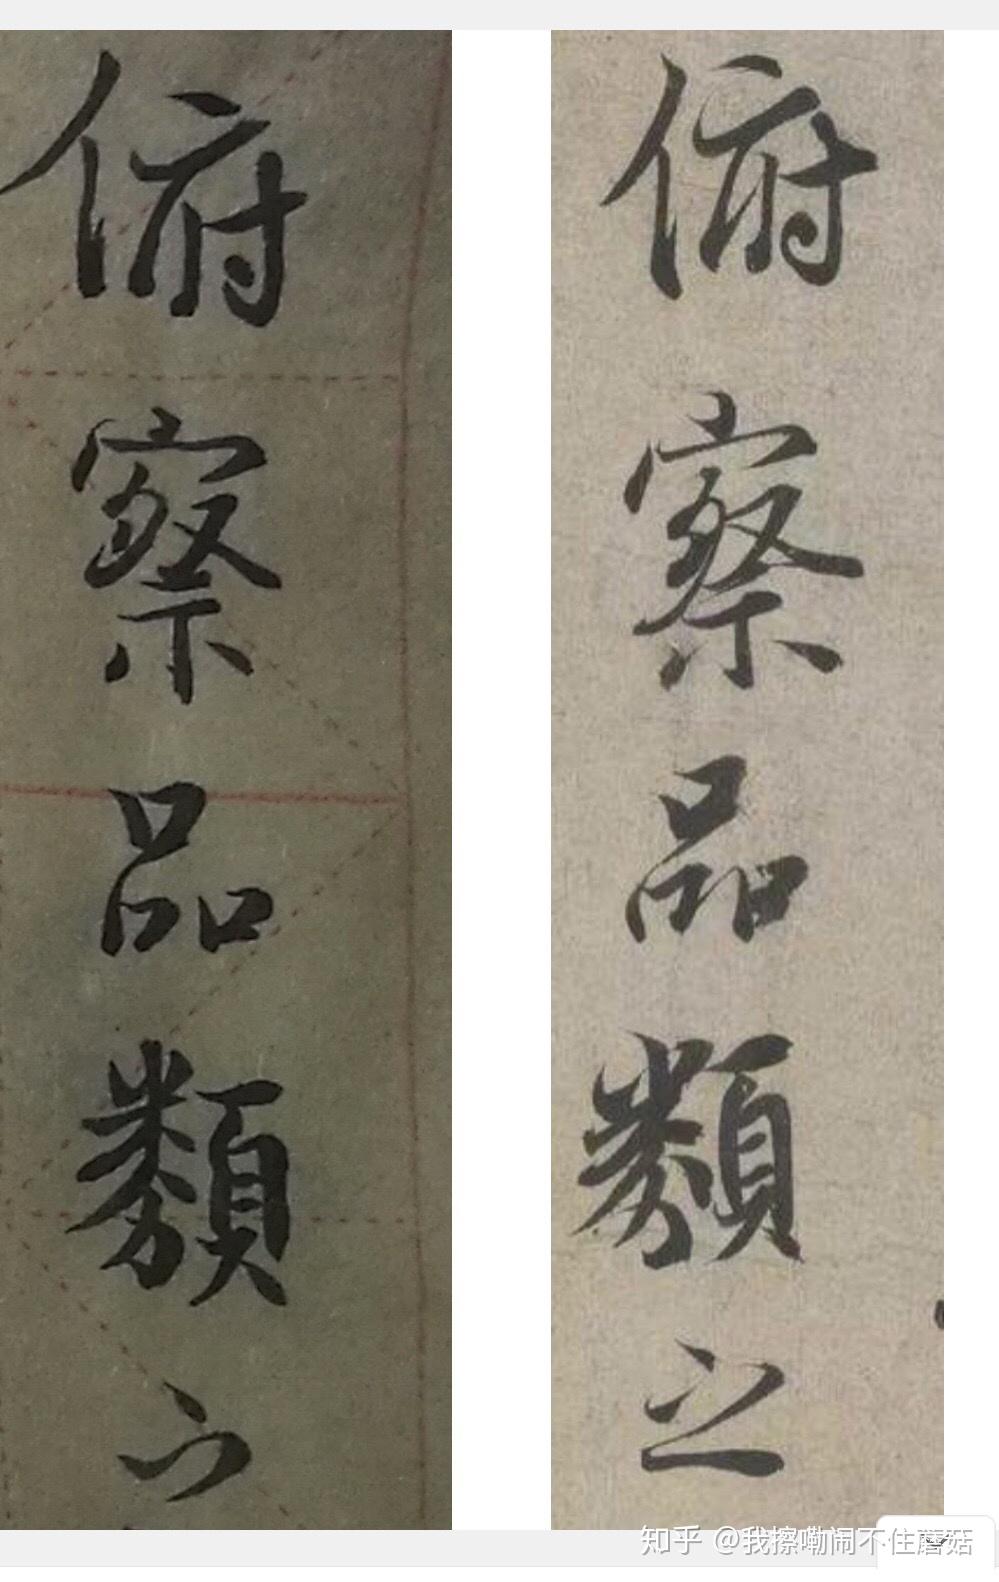 俯察品類之
俯察品類之
知乎 @我擦嘞闹不住蘑菇